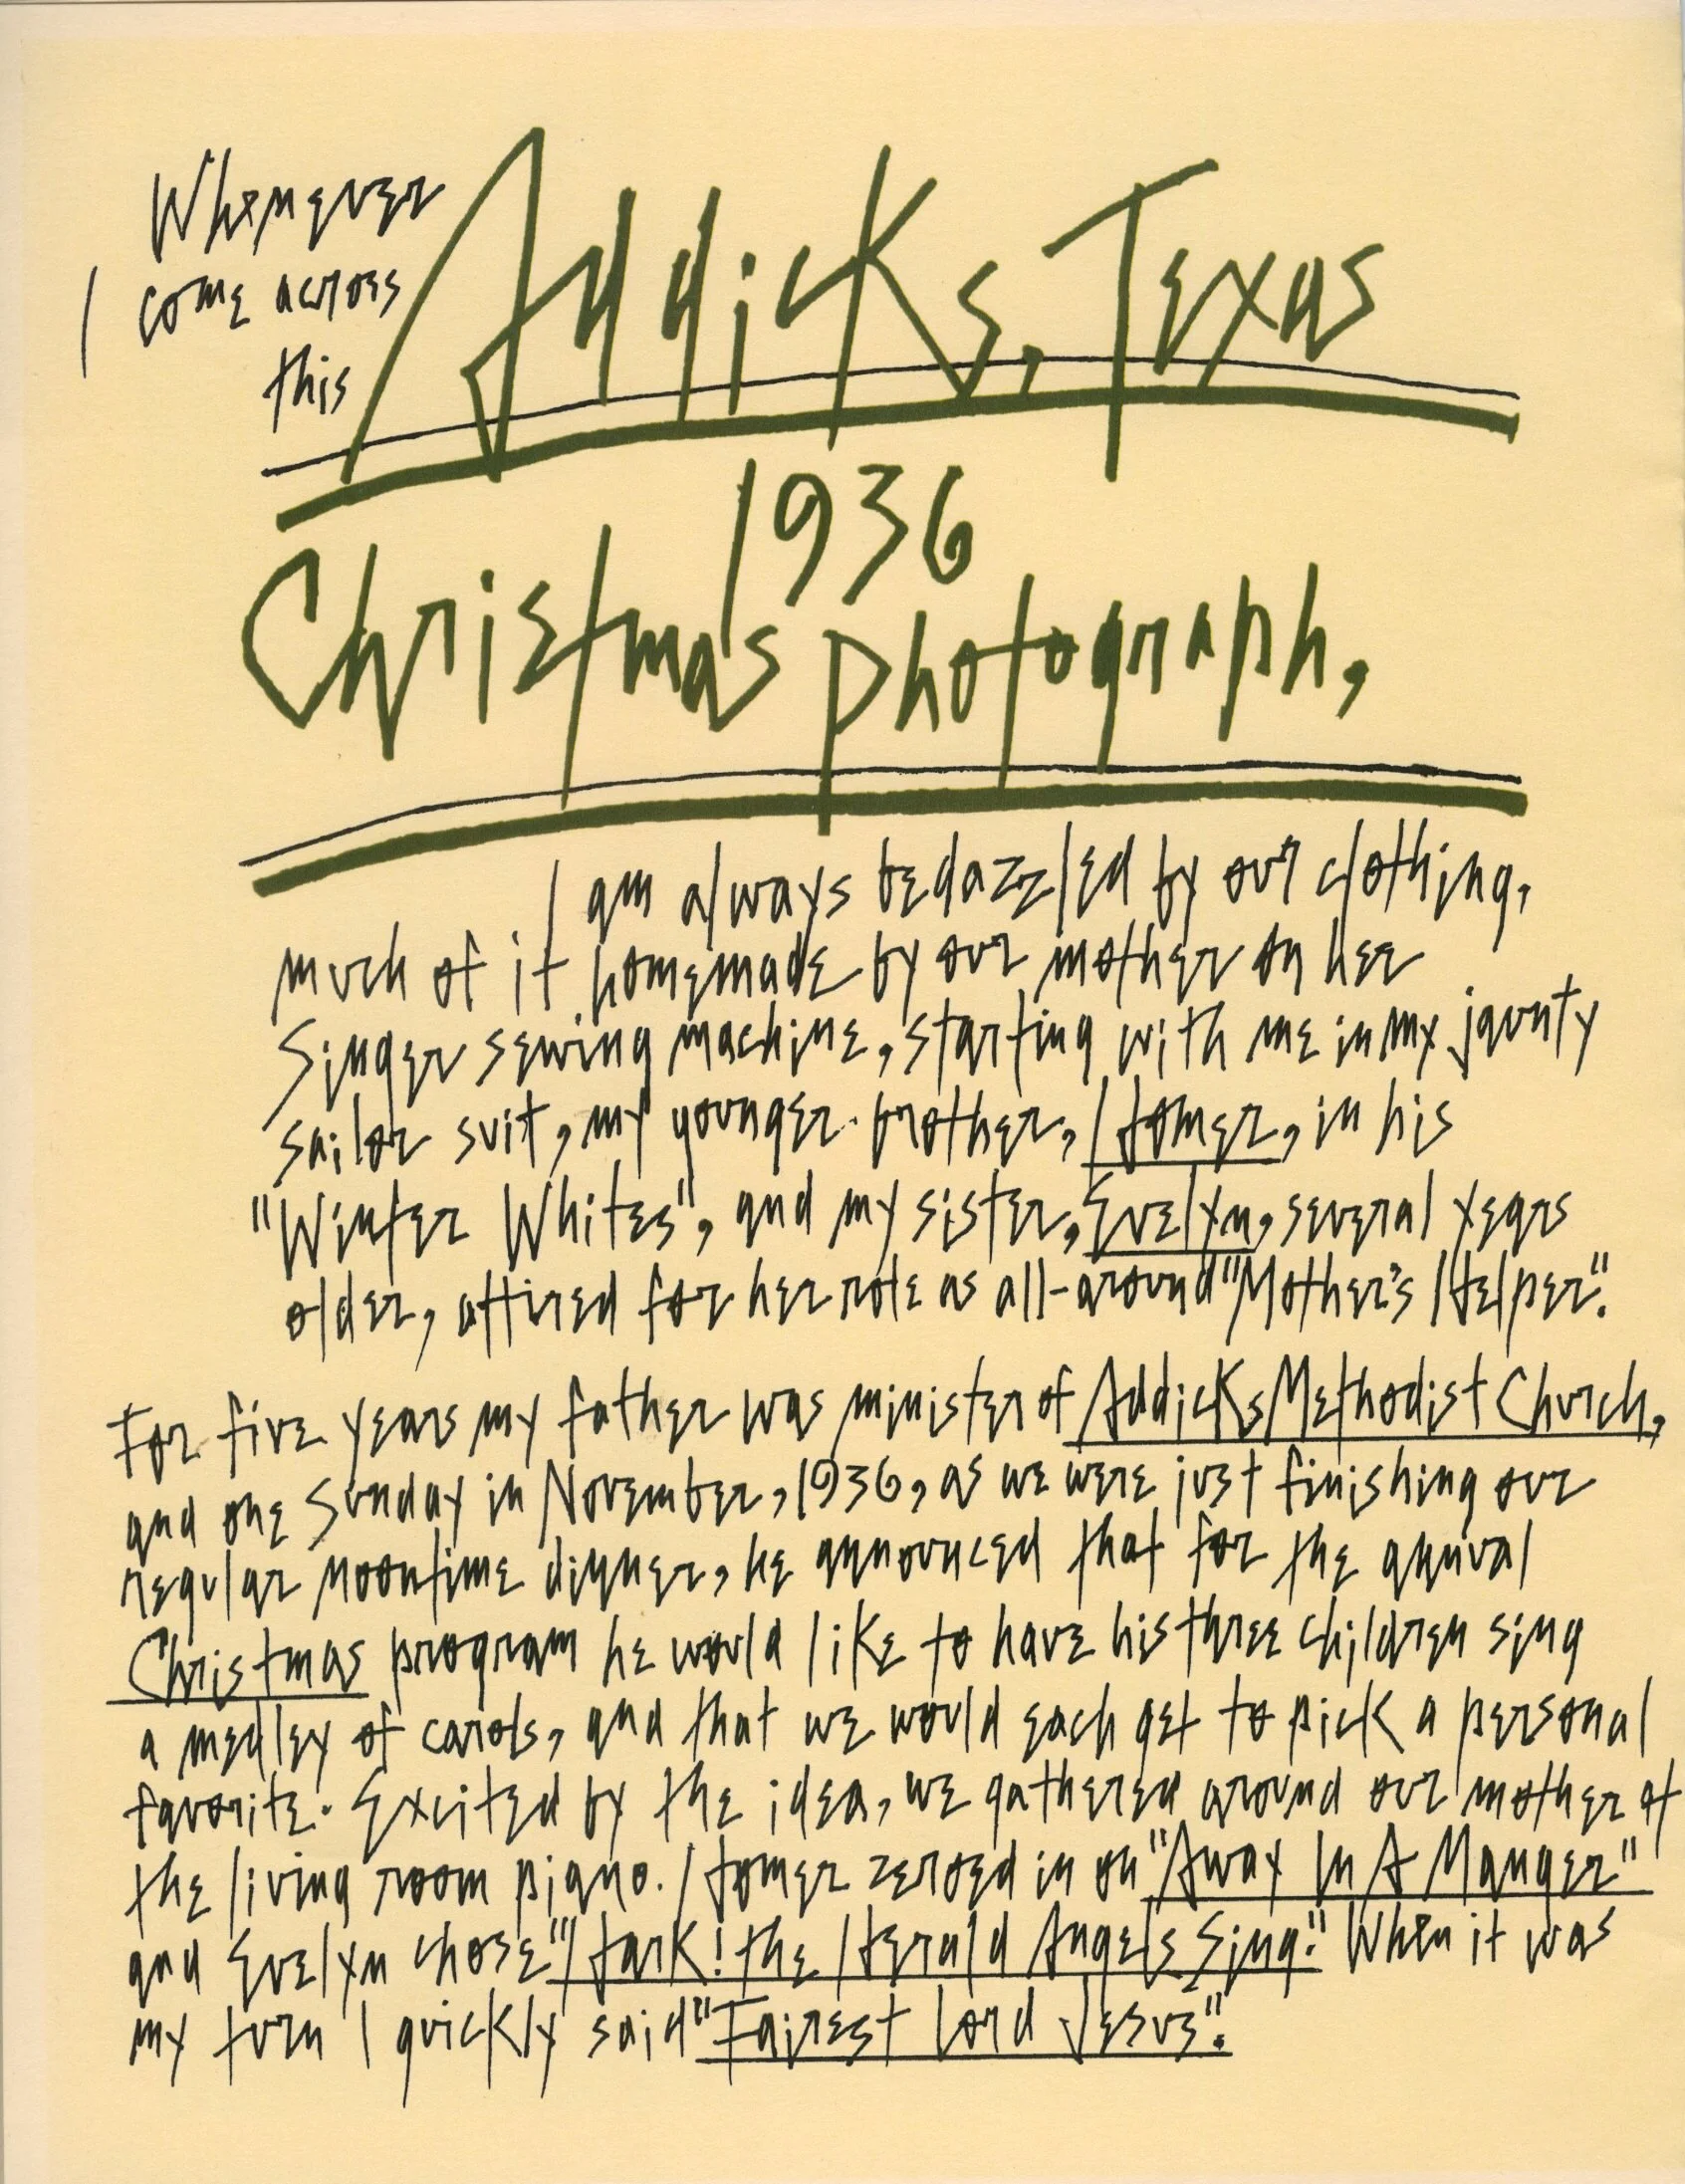 Whenever
I come across
this
Addicks, Texas
1936
Christmas photograph,
I am always bedazzled by our clothing,
much of it homemade by our mother on her
Singer sewing machine, starting with me in my jaunty
sailor suit, my younger brother, Homer, in his
"Winter Whites", and my sister, Evelyn, several years
older, attired for her role as all-around "Mother's Helper".
For five years my father was minister of Addicks Methodist Church,
and one Sunday in November, 1936, as we were just finishing our
regular noontime dinner, he announced that for the annual
Christmas program he would like to have his three children sing
a medley of carols, and that we would each get to pick a personal
favorite. Excited by the idea, we gathered around our mother at
the living room piano. Homer zeroed in on "Away In A Manger"
and Evelyn chose "Hark! the Herald Angels Sing." When it was
my turn I quickly said "Fairest Lord Jesus".